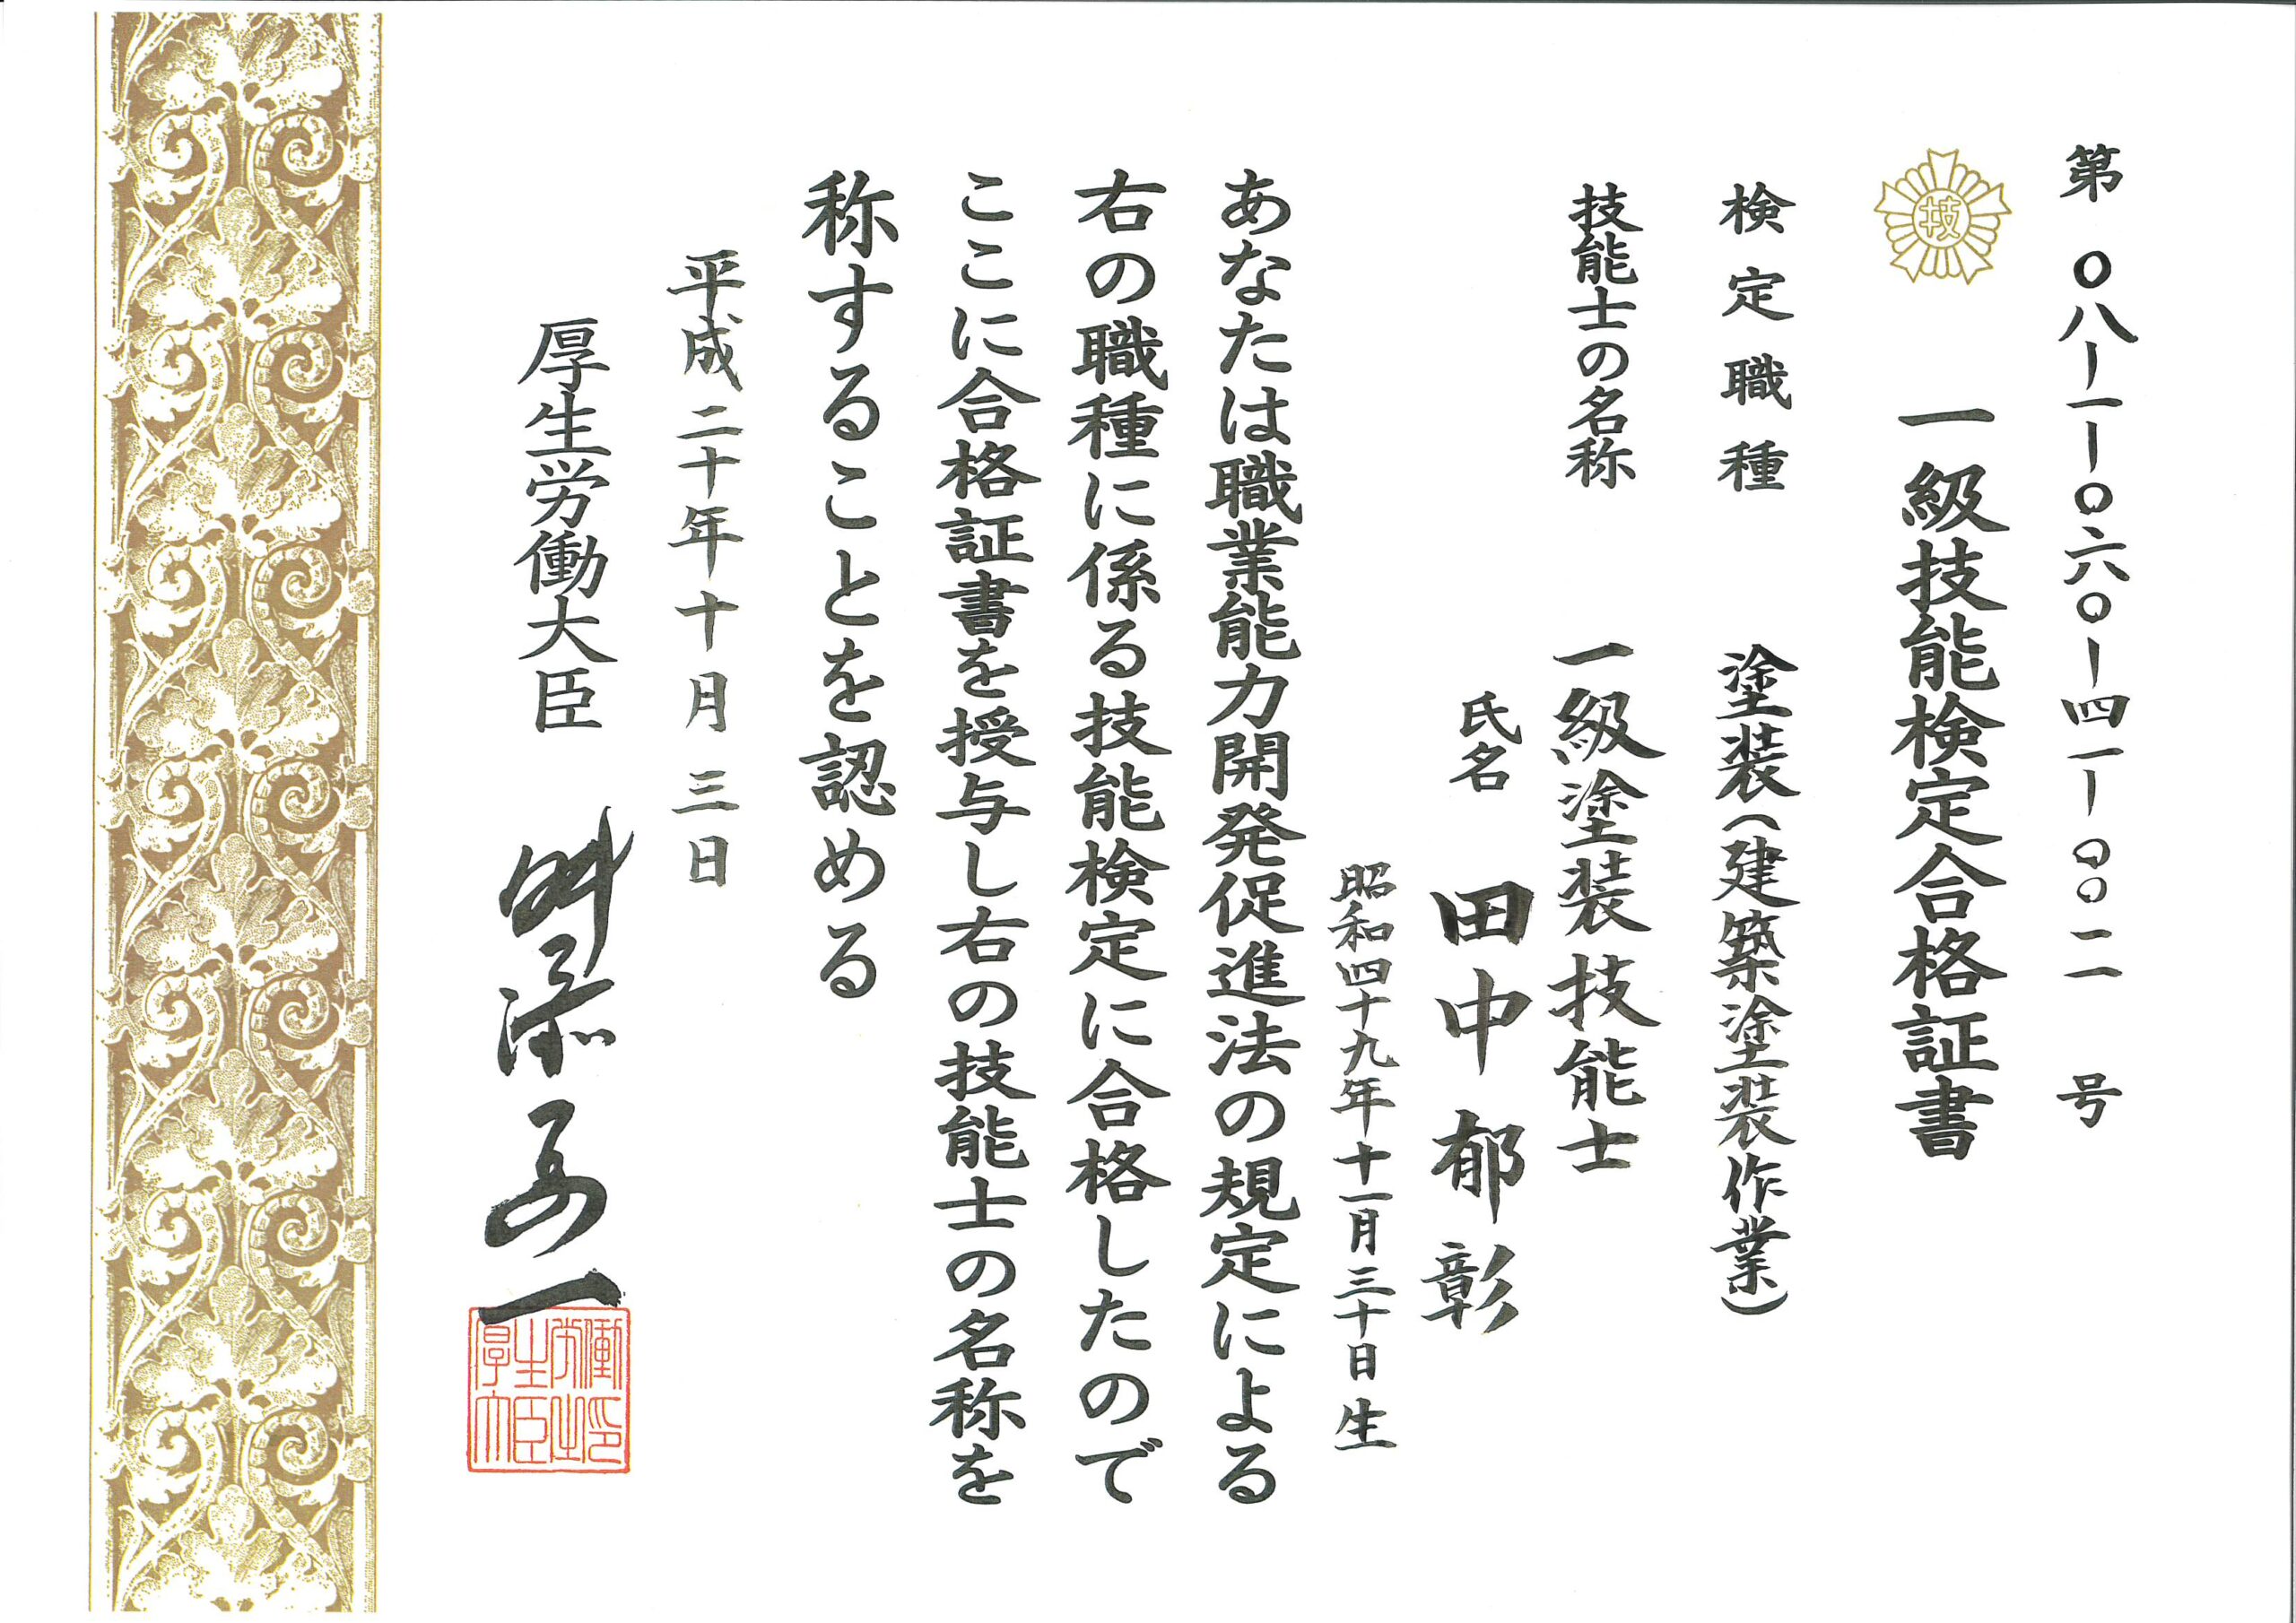 第〇八ー一ー〇六〇ー四一ー〇〇二一号
技
一級技能検定合格証書
検定職種 塗装(建築塗装作業)
技能士の名称 一級塗装技能士
氏名 田中郁彰
昭和四十九年十一月三十日生
あなたは職業能力開発促進法の規定による
右の職種に係る技能検定に合格したので
ここに合格証書を授与し右の技能士の名称を
称することを認める
平成二十年十月三日
厚生労働大臣 舛添要一
厚生労働大臣之印